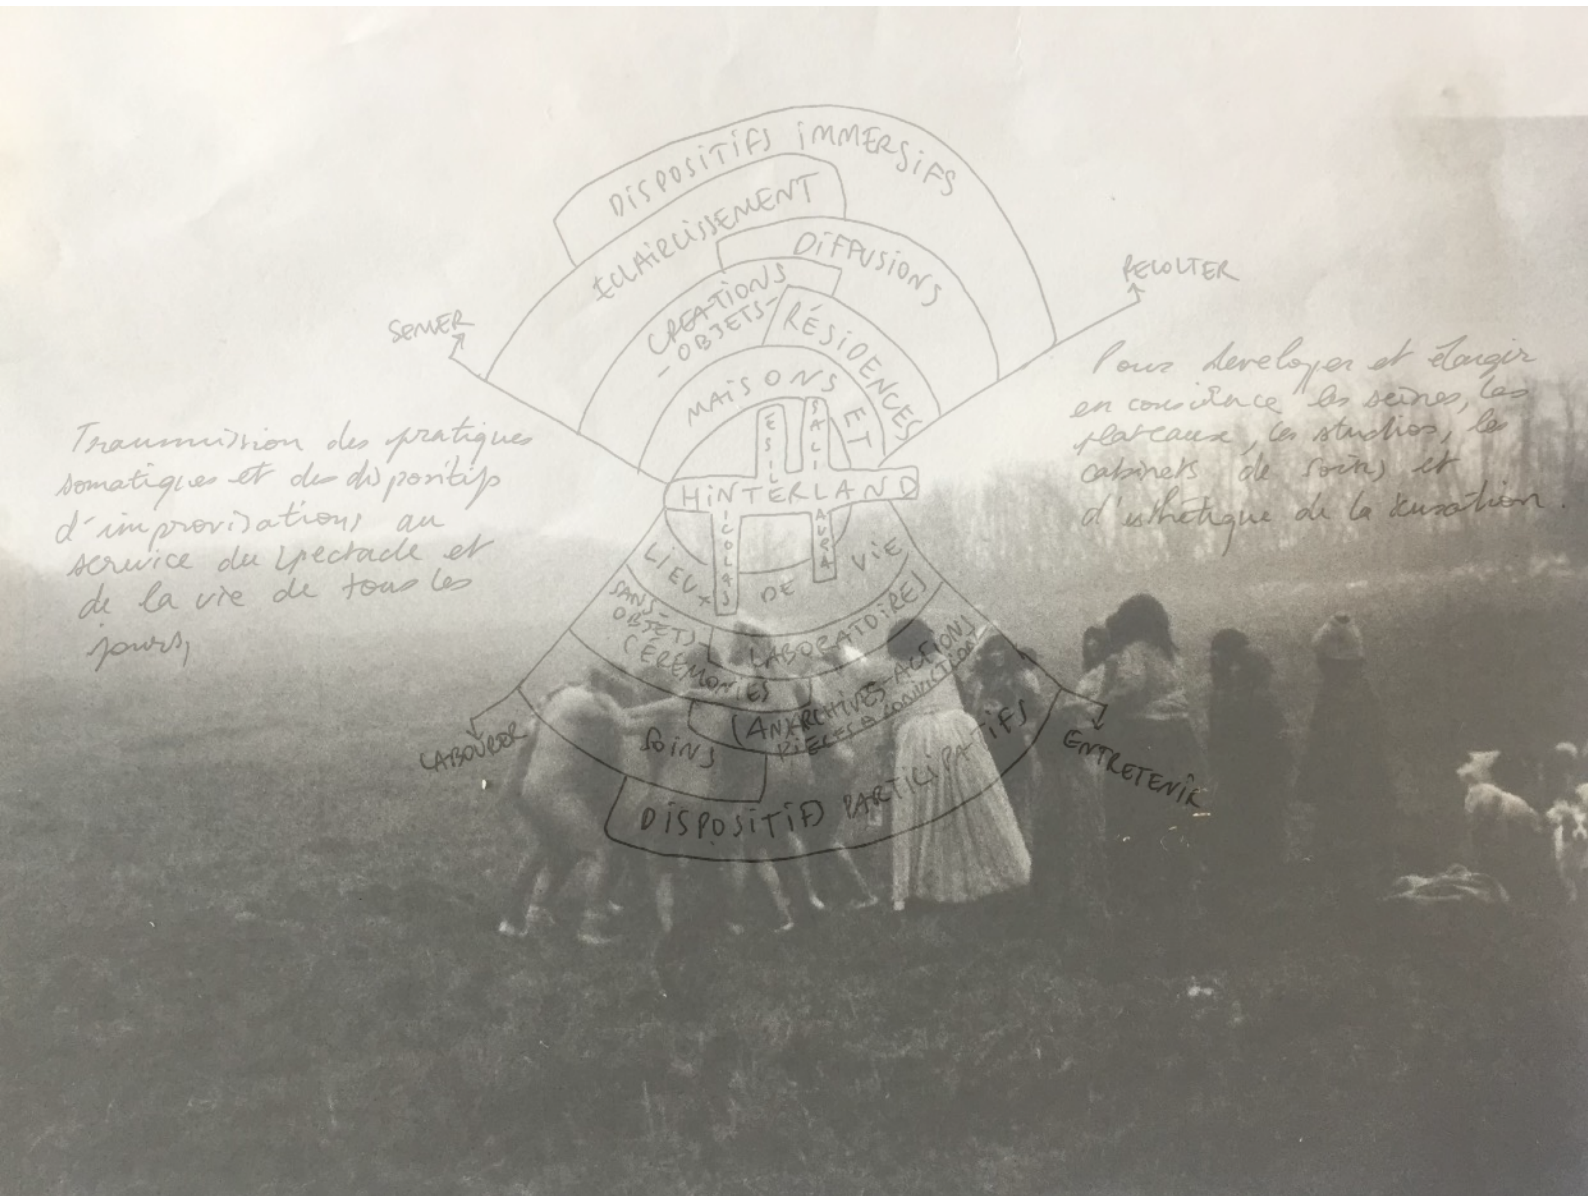 DISPOSITIFS IMMERSIFS
ECLAIRCISSEMENT
DIFFUSIONS
CREATIONS
-OBJETS-
RÉSIDENCES
SEMER
RECOLTER
MAISONS ET
HINTERLAND
NICOLAS
LAURA
LIEUX DE VIE
SANS-
OBJETS
CÉRÉMONIES
LABORATOIRES
SOINS
(ANARCHIVES-ACTIONS
DISPOSITIFS PARTICIPATIFS
LABOURER
ENTRETENIR
Transmission des pratiques
somatiques et des dispositifs
d'improvisations au
service du spectacle et
de la vie de tous les
jours,
Pour developer et élargir
en conscience les scènes, les
plateaux, les studios, les
cabinets de soins et
d'esthétique de la sensation.